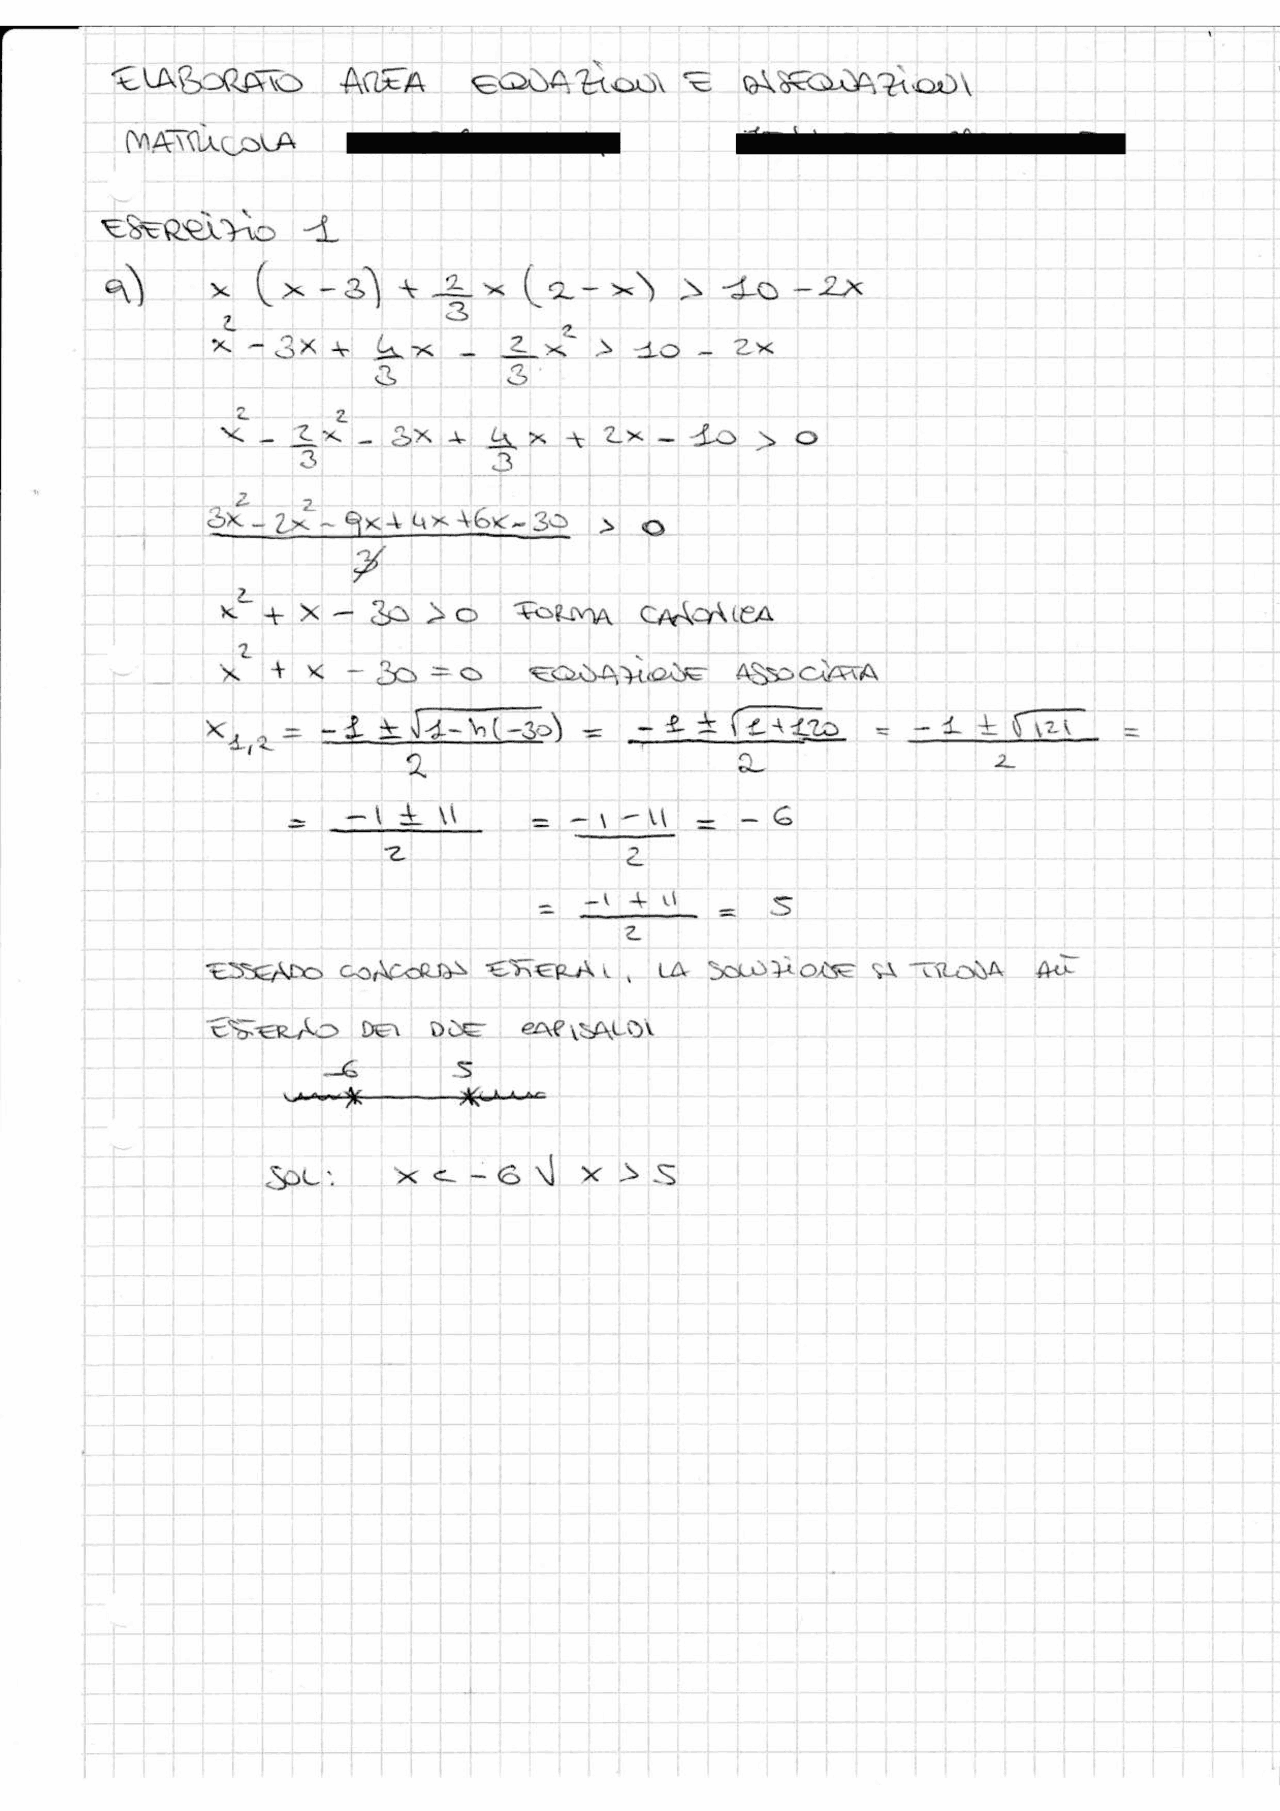 ELABORATO AREA EQUAZIONI E DISEQUAZIONI
MATRICOLA
ESERCIZIO 1
a) x (x - 3) + 2/3 x (2 - x) > 10 - 2x
x² - 3x + 4/3 x - 2/3 x² > 10 - 2x
x² - 2/3 x² - 3x + 4/3 x + 2x - 10 > 0
(3x² - 2x² - 9x + 4x + 6x - 30)/3 > 0
x² + x - 30 > 0 FORMA CANONICA
x² + x - 30 = 0 EQUAZIONE ASSOCIATA
x₁,₂ = (-1 ± √(1 - 4(-30)))/2 = (-1 ± √(1 + 120))/2 = (-1 ± √121)/2 =
= (-1 ± 11)/2 = (-1 - 11)/2 = -6
= (-1 + 11)/2 = 5
ESSENDO CONCORDI ESTERNI, LA SOLUZIONE SI TROVA ALL'
ESTERNO DEI DUE CAPISALDI
-6 5
SOL: x < -6 ∨ x > 5